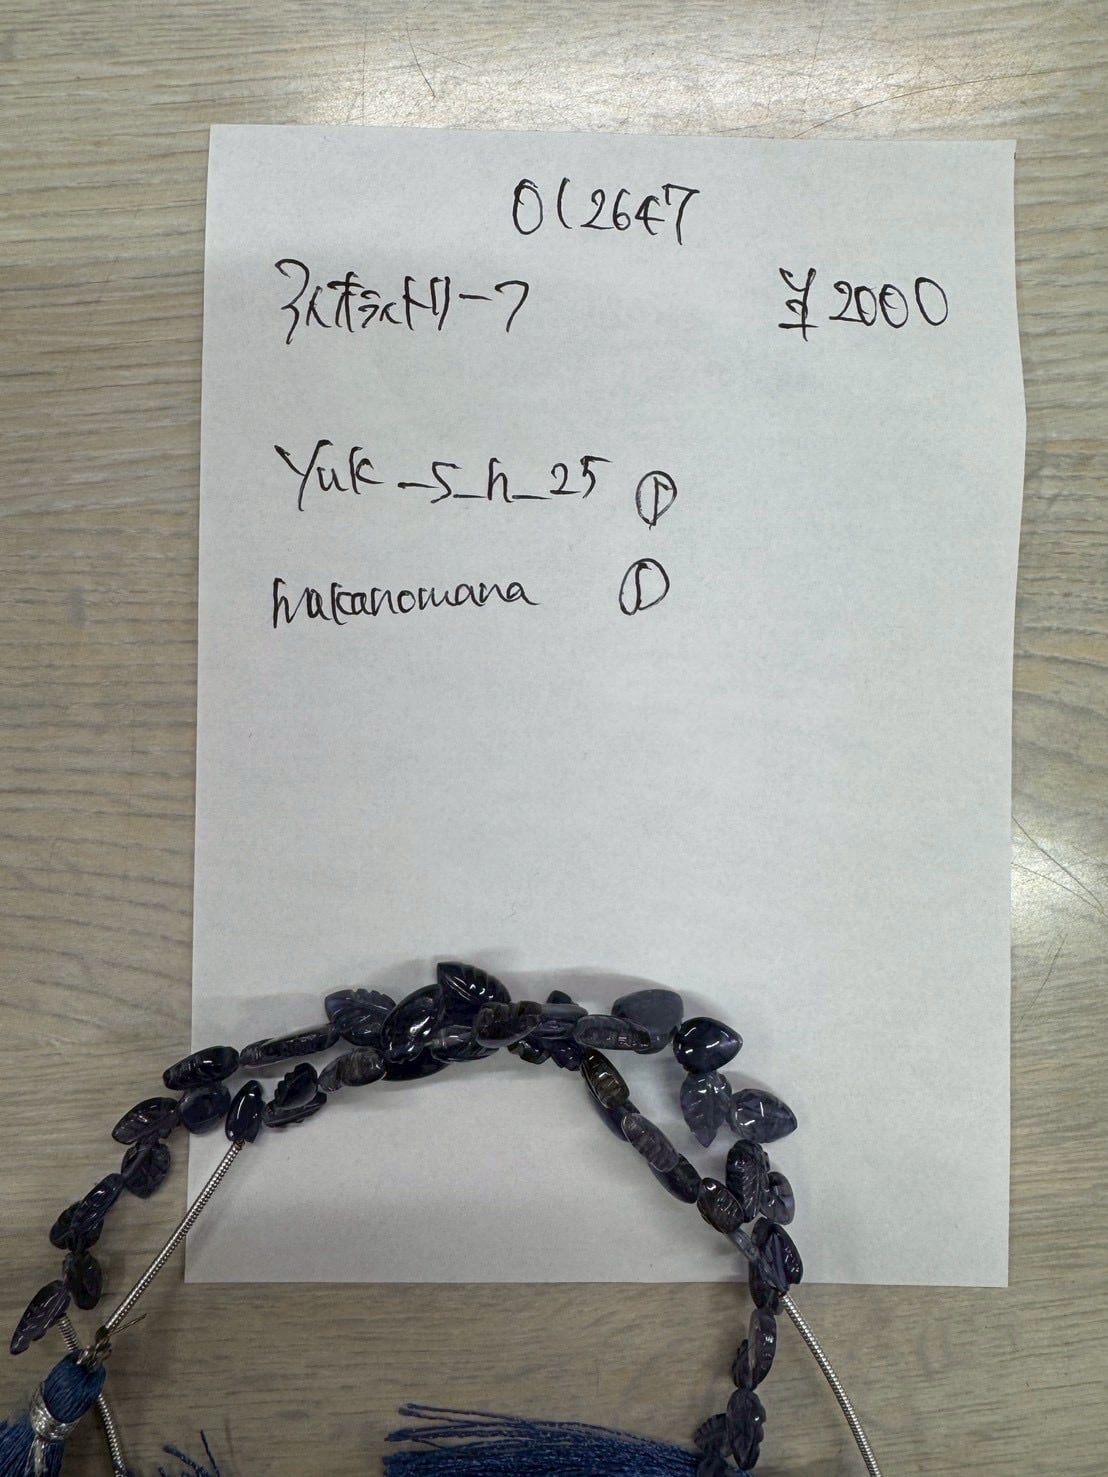 012647
アイオライトリーフ ¥2000
yuk_s_h_25 ①
nakanomana ①